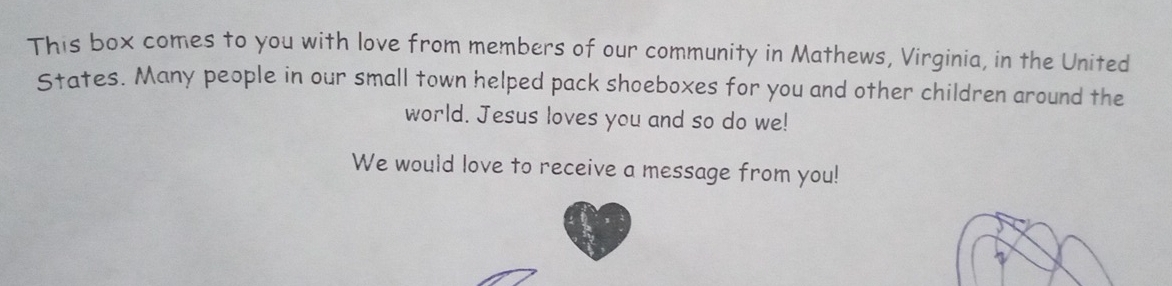 This box comes to you with love from members of our community in Mathews, Virginia, in the United
States. Many people in our small town helped pack shoeboxes for you and other children around the
world. Jesus loves you and so do we!
We would love to receive a message from you!